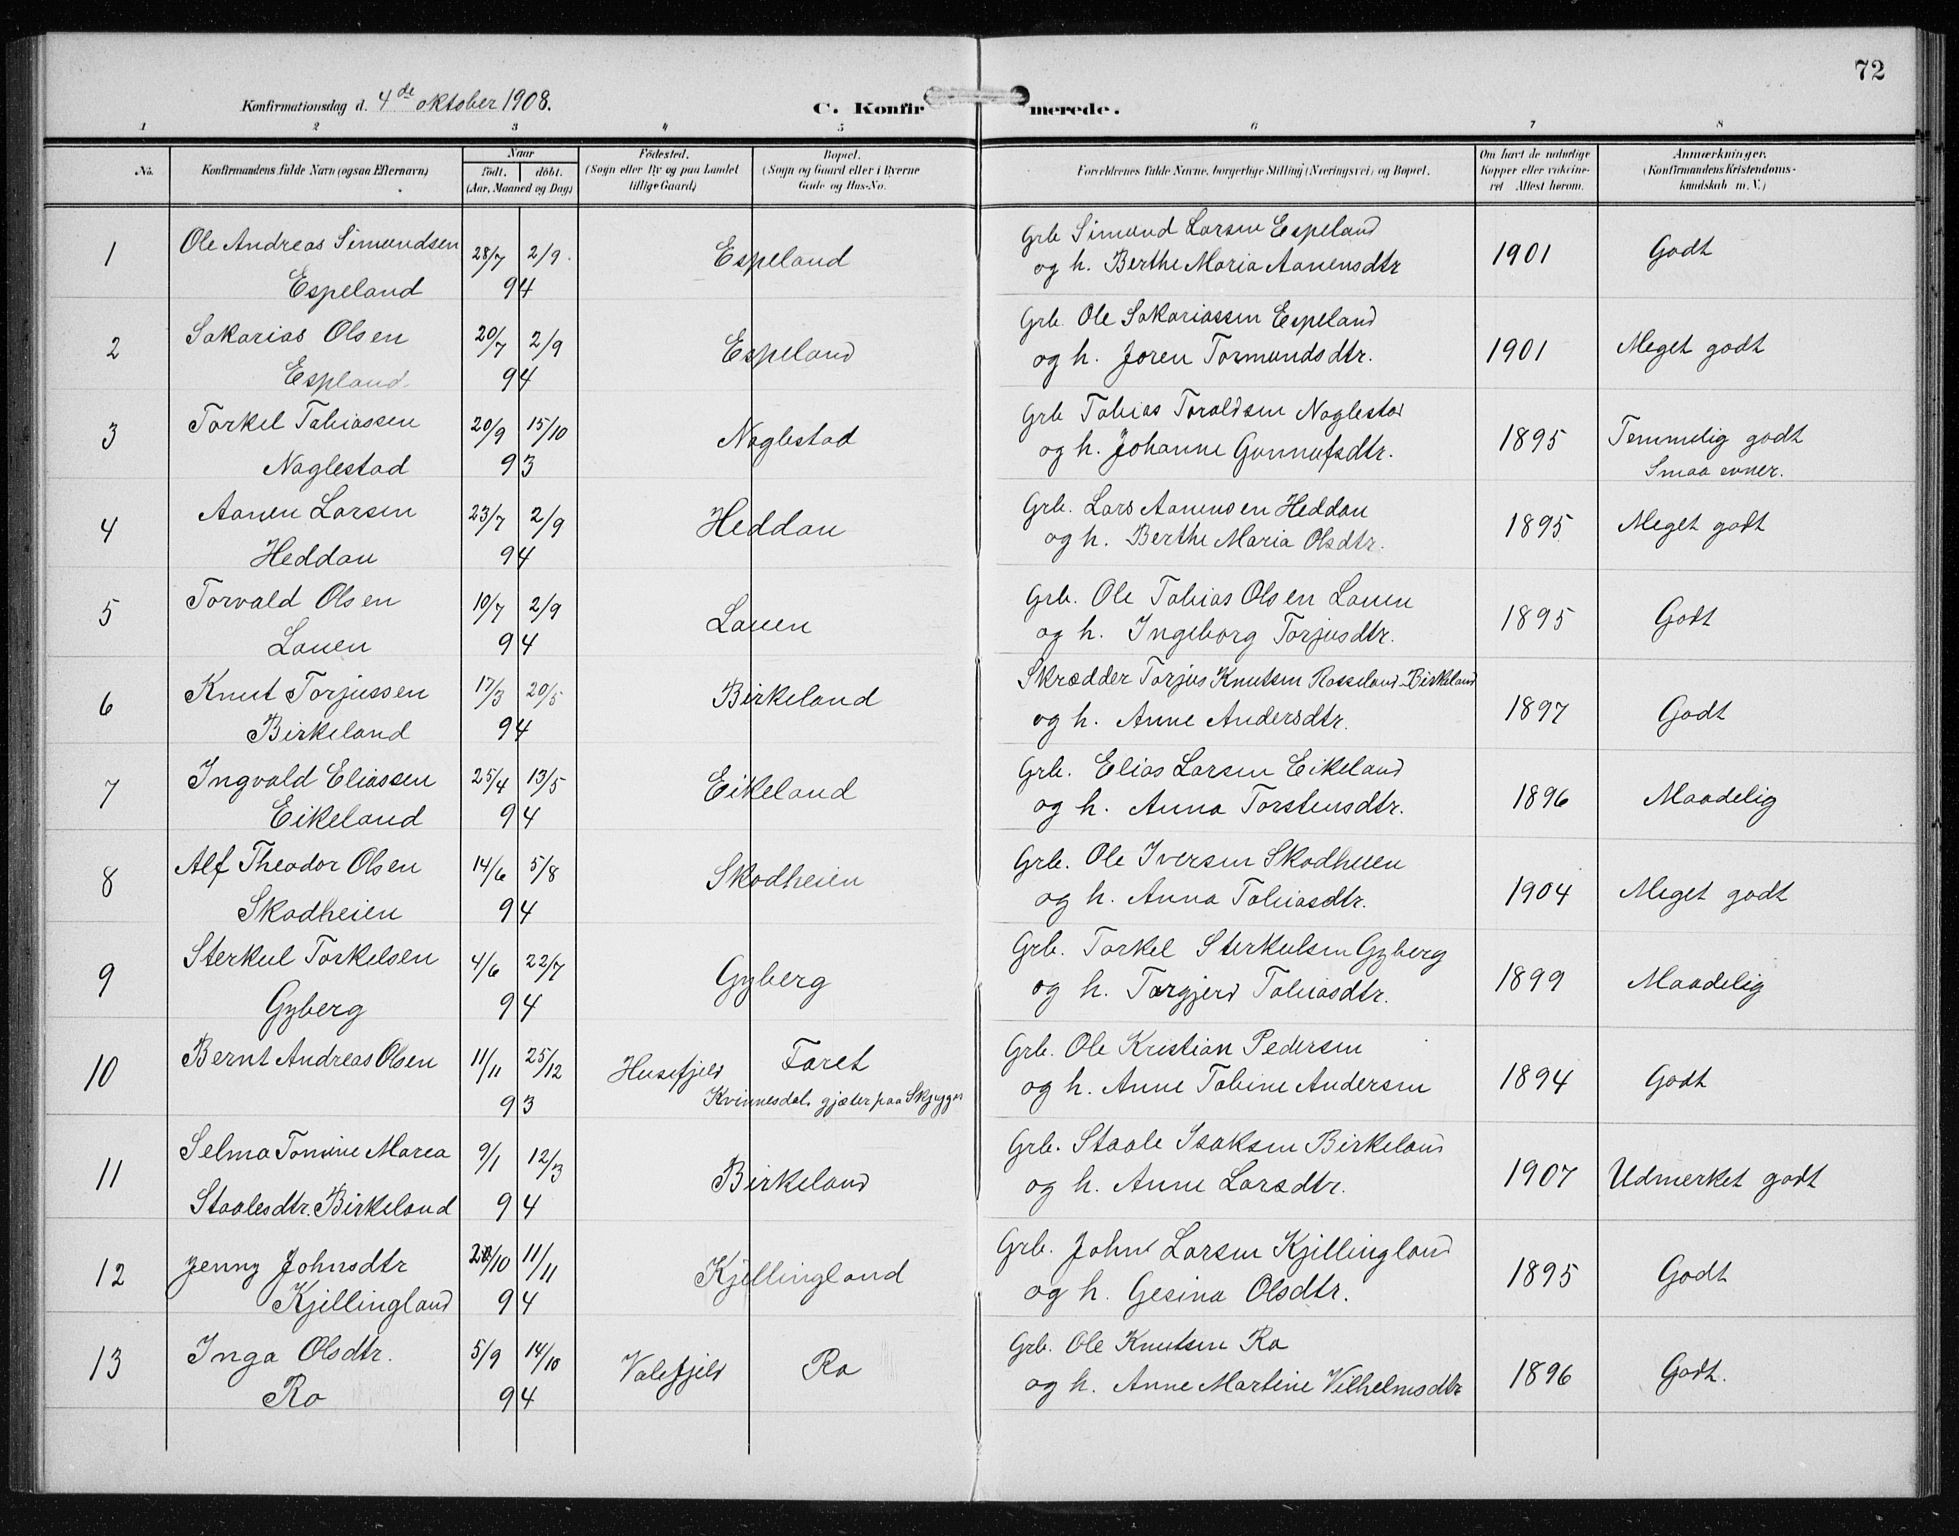 72
Konfirmationsdag d. 4de oktober 1908.
C. Konfirmerede.
1 2 3 4 5 6 7 8
No. Konfirmandens fulde Navn (ogsaa Efternavn) Naar født. døbt. (Aar, Maaned og Dag) Fødested. (Sogn eller By og paa Landet tillige Gaard.) Bopæl. (Sogn og Gaard eller i Byerne Gade og Hus-No. Forældrenes fulde Navne, borgerlige Stilling (Næringsvei) og Bopæl. Om havt de naturlige Kopper eller vakcineret. Attest herom. Anmærkninger. (Konfirmandens Kristendomskundskab m. V.)
1 Ole Andreas Simundsen 28/7 2/9 Espeland Grb Simund Larsen Espeland 1901 Godt
Espeland 94 og h. Berthe Maria Aanensdtr
2 Sakarias Olsen 20/7 2/9 Espeland Grb. Ole Sakariassen Espeland 1901 Meget godt
Espland 94 og h. Joren Tormundsdtr.
3 Torkel Tobiassen 20/9 15/10 Naglestad Grb Tobias Toraldsen Naglestad 1895 Temmelig godt
Naglestad 93 og h. Johanne Gunnufsdtr. Smaa evner.
4 Aanen Larsen 23/7 2/9 Heddan Grb. Lars Aanensen Heddan 1895 Meget godt
Heddan 94 og h. Berthe Maria Olsdtr.
5 Torvald Olsen 10/7 2/9 Lauen Grb. Ole Tobias Olsen Lauen 1895 Godt
Lauen 94 og h. Ingeborg Torjusdtr.
6 Knut Torjussen 17/3 20/5 Birkeland Skrædder Torjus Knutsen Rosseland-Birkeland 1897 Godt
Birkeland 94 og h. Anne Andersdtr.
7 Ingvald Eliassen 25/4 13/5 Eikeland Grb. Elias Larsen Eikeland 1896 Maadelig
Eikeland 94 og h. Anna Torstensdtr.
8 Alf Theodor Olsen 14/6 5/8 Skadheien Grb. Ole Iversen Skadheien 1904 Meget godt
Skadheien 94 og h. Anna Tobiasdtr.
9 Sterkul Torkelsen 4/6 22/7 Gyberg Grb. Torkel Sterkulsen Gyberg 1899 Maadelig
Gyberg 94 og h. Torgjerd Tobiasdtr.
10 Bernt Andreas Olsen 11/11 25/12 Husefjeld Faret Grb. Ole Kristian Pedersen 1894 Godt
93 Kvinnesdal. gjæter paa og h. Anne Tobine Andersen
11 Selma Tomine Marea 9/1 12/3 Birkeland Grb. Staale Isaksen Birkeland 1907 Udmerket godt
Staalesdtr. Birkeland 94 og h. Anne Larsdtr.
12 Jenny Johnsdtr /10 11/11 Kjellingland Grb. John Larsen Kjillingland 1895 Godt
Kjillingland 94 og h. Gesina Olsdtr.
13 Inga Olsdtr. 5/9 14/10 Valefjeld Ro Grb. Ole Knutsen Ro 1896 Godt.
Ro 94 og h. Anne Martine Vilhelmsdtr